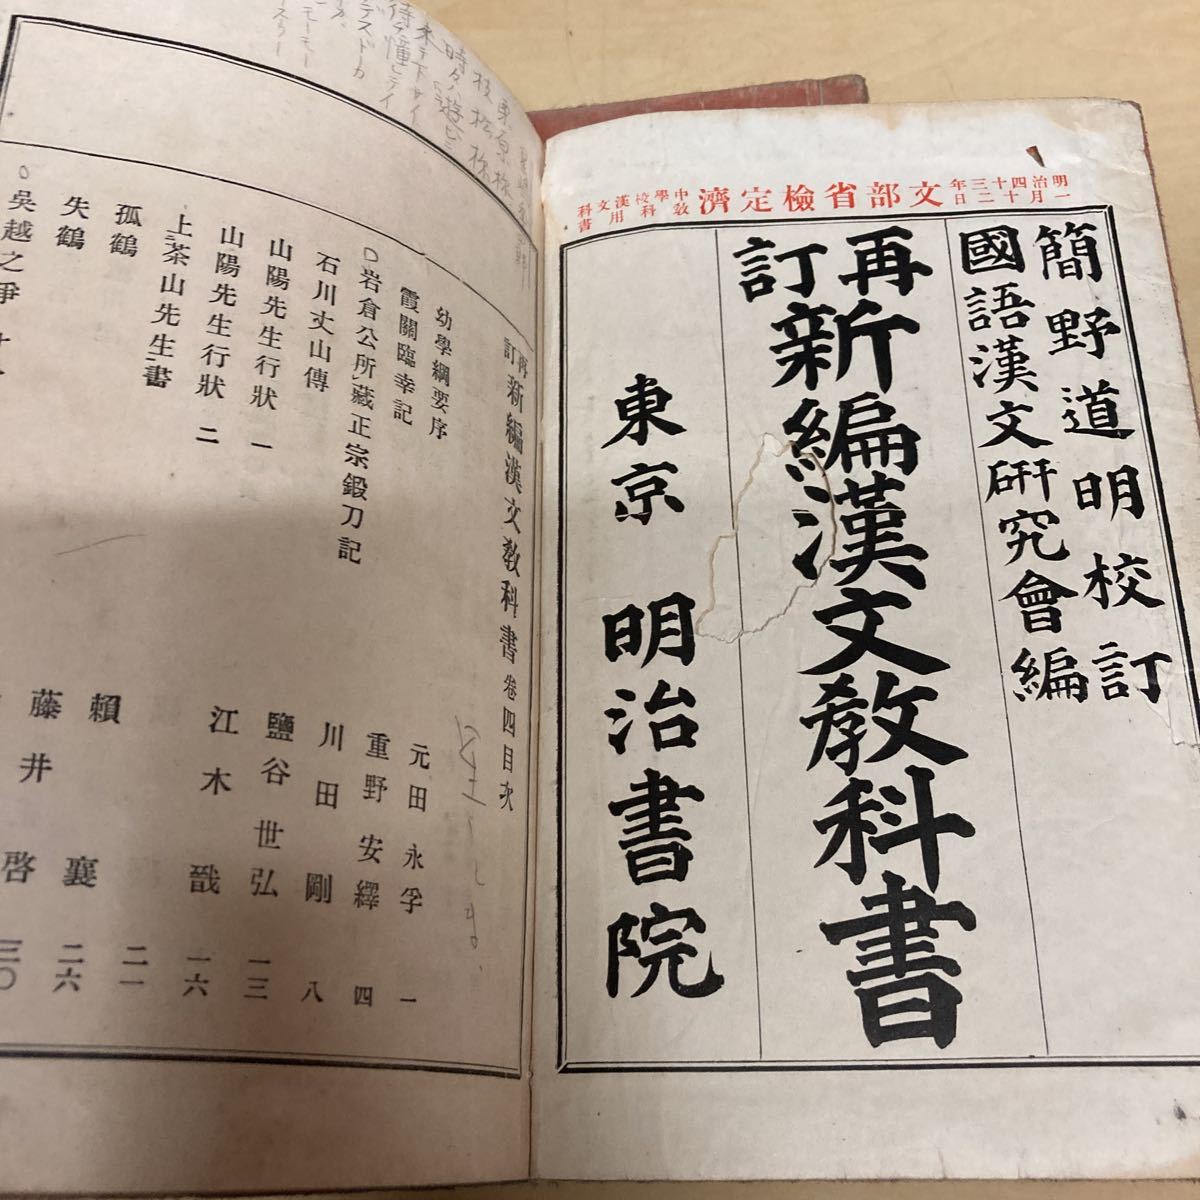 明治四十三年
一月十二日
文部省檢定濟
中學校漢文科
教科用書
簡野道明校訂
國語漢文研究會編
再訂新編漢文教科書
東京 明治書院
再訂新編漢文敎科書卷四目次
幼學綱要序 元田永孚 一
霞關臨幸記 重野安繹 四
○岩倉公所藏正宗鍛刀記 川田剛 八
石川丈山傳 鹽谷世弘 一三
山陽先生行狀一 江木戩 一六
山陽先生行狀二 二一
上茶山先生書 賴襄 二六
孤鶴 藤井啓 三〇
失鶴
○吳越之爭